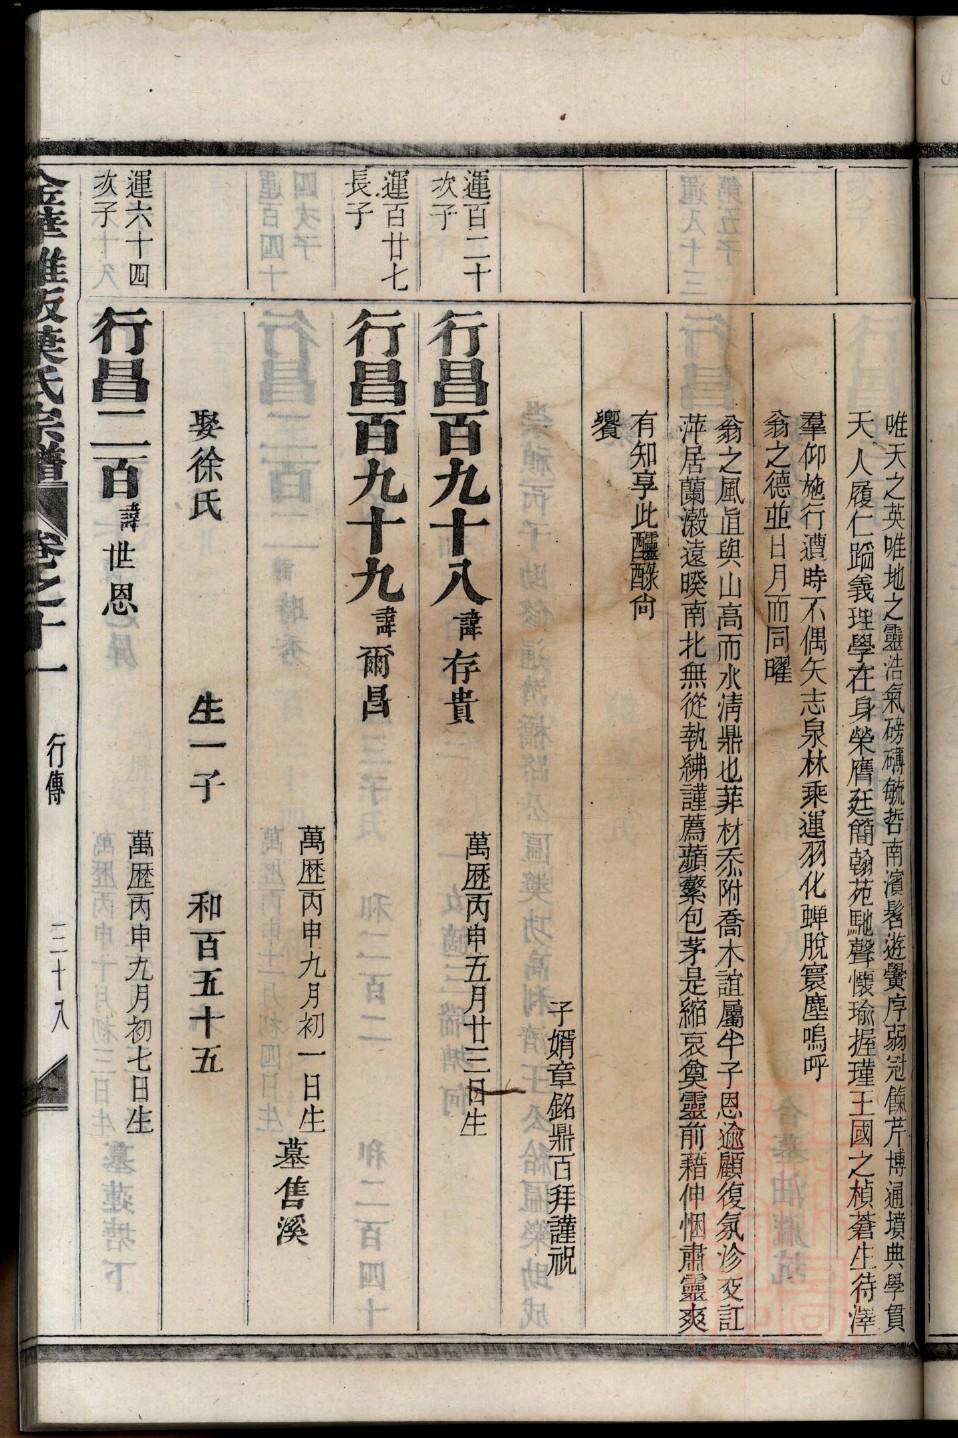 唯天之英唯地之靈浩氣磅礴毓哲南濱髫遊黌序弱冠餼芹博通墳典學貫
天人履仁蹈義理學在身榮膺廷簡翰苑馳聲懷瑜握瑾王國之楨蒼生待澤
羣仰施行遭時不偶矢志泉林乘運羽化蟬脫寰塵嗚呼
翁之德並日月而同曜
翁之風直與山高而水清鼎也菲材忝附喬木誼屬半子恩逾顧復氛沴交訌
萍居蘭瀔遠暌南北無從執紼謹薦蘋蘩包茅是縮哀奠靈前藉伸悃肅靈爽
有知享此醽醁尙
饗
子婿章銘鼎百拜謹祝
運百二十
次子
行昌百九十八諱存貴
萬歷丙申五月廿三日生
運百廿七
長子
行昌百九十九諱爾昌
萬歷丙申九月初一日生
墓售溪
娶徐氏 生一子 和百五十五
運六十四
次子
行昌二百諱世恩
萬歷丙申九月初七日生
金華雅畈葉氏宗譜 卷之十一 行傳 三十八